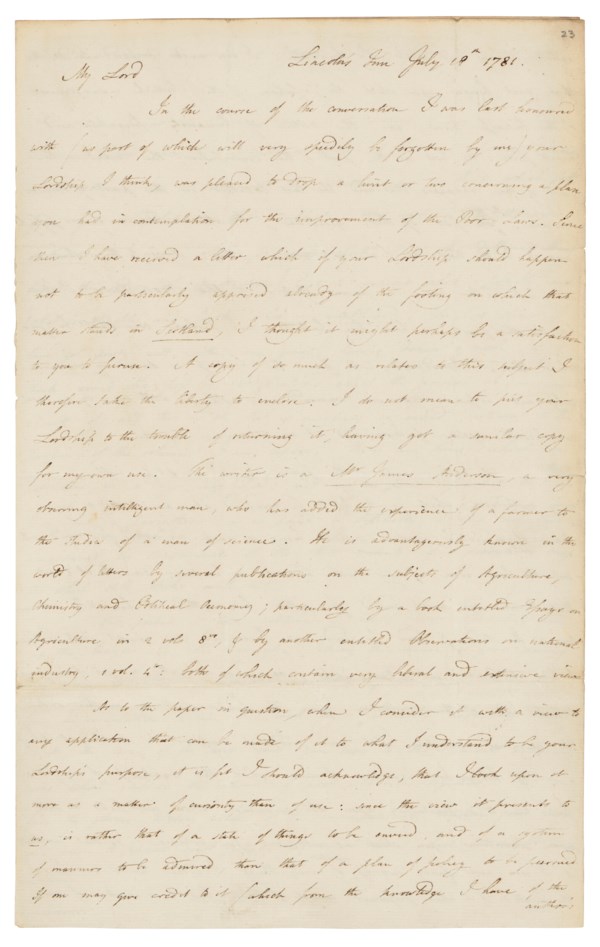 23
Lincoln's Inn July 18th 1781.
My Lord
In the course of the conversation I was last honoured
with (no part of which will very speedily be forgotten by me) your
Lordship I think, was pleased to drop a hint or two concerning a plan
you had in contemplation for the improvement of the Poor Laws. Since
then I have received a letter which if your Lordship should happen
not to be particularly apprized already of the footing on which that
matter stands in Scotland, I thought it might perhaps be a satisfaction
to you to peruse. A copy of so much as relates to this subject I
therefore take the liberty to enclose. I do not mean to put your
Lordship to the trouble of returning it, having got a similar copy
for my own use. The writer is a Mr James Anderson, a very
observing intelligent man, who has added the experience of a farmer to
the of a man of science. He is advantageously known in the
world of letters by several publications on the subjects of Agriculture,
Chemistry and Political Oeconomy; particularly by a book entitled Essays on
Agriculture in 2 vols 8vo, & by another entitled Observations on national
industry, 1 vol. 4to: both of which contain very liberal and extensive views
As to the paper in question, when I consider it with a view to
any application that can be made of it to what I understand to be your
Lordship's purpose, it is fit I should acknowledge, that I look upon it
more as a matter of curiosity than of use: since the view it presents to
us, is rather that of a state of things to be envied, and of a system
of manners to be admired than that of a plan of policy to be pursued
If one may give credit to it (which from the knowledge I have of the
author's